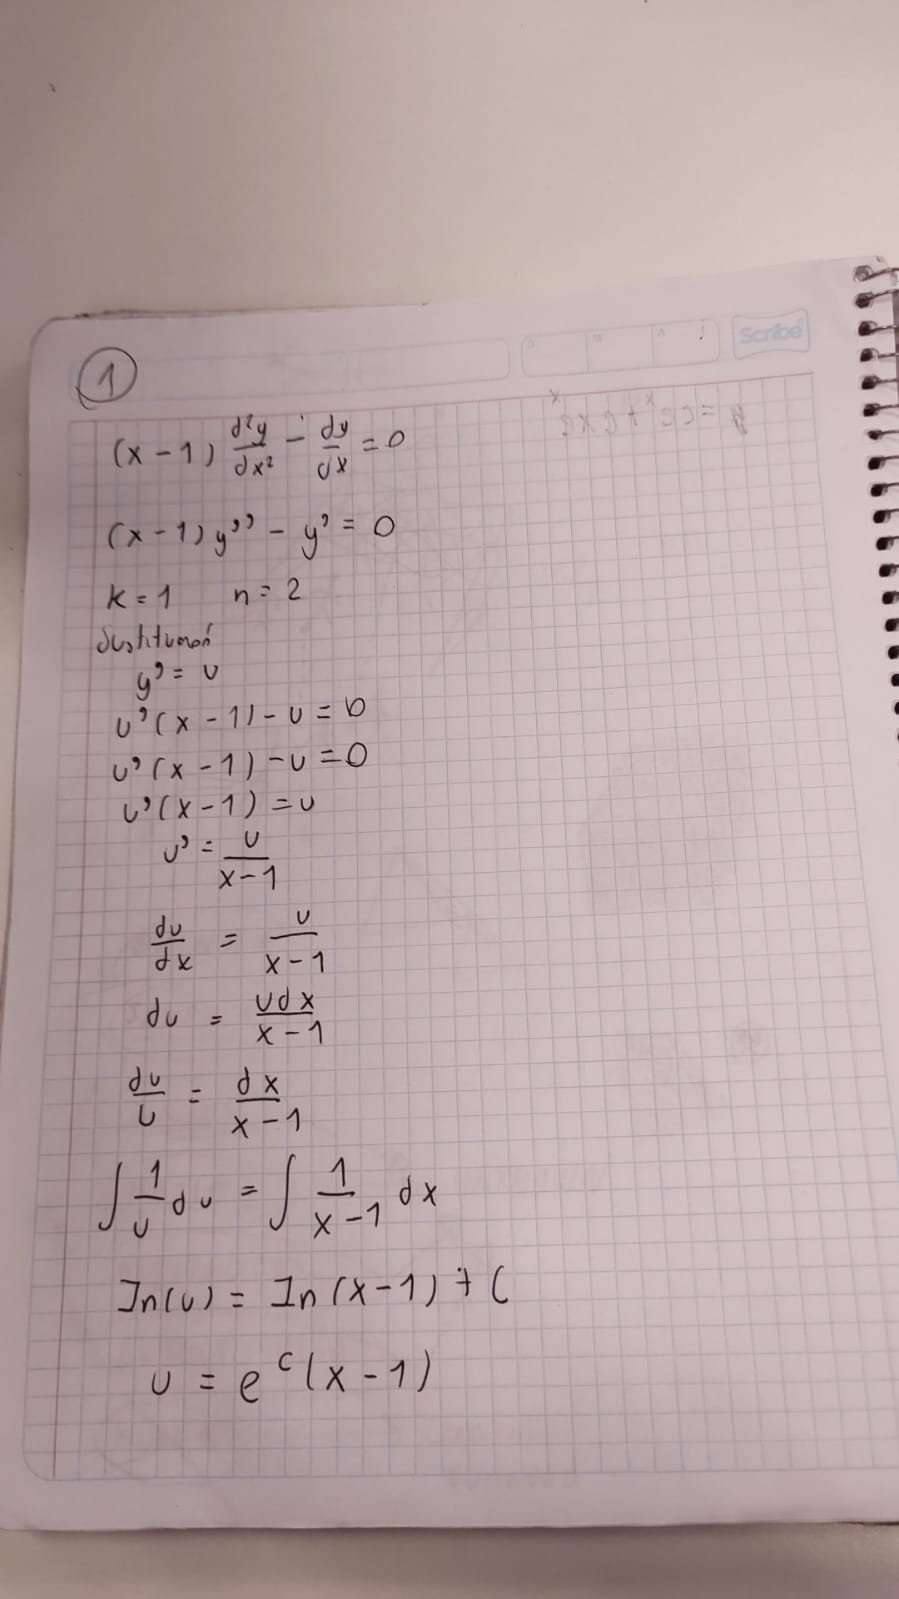 Scribe
1
(x-1) d²y/dx² - dy/dx = 0
(x-1) y'' - y' = 0
k = 1 n = 2
y' = u
u'(x-1) - u = 0
u'(x-1) - u = 0
u'(x-1) = u
u' = u/x-1
du/dx = u/x-1
du = udx/x-1
du/u = dx/x-1
∫ 1/u du = ∫ 1/x-1 dx
In(u) = In(x-1) + C
u = e^c (x-1)